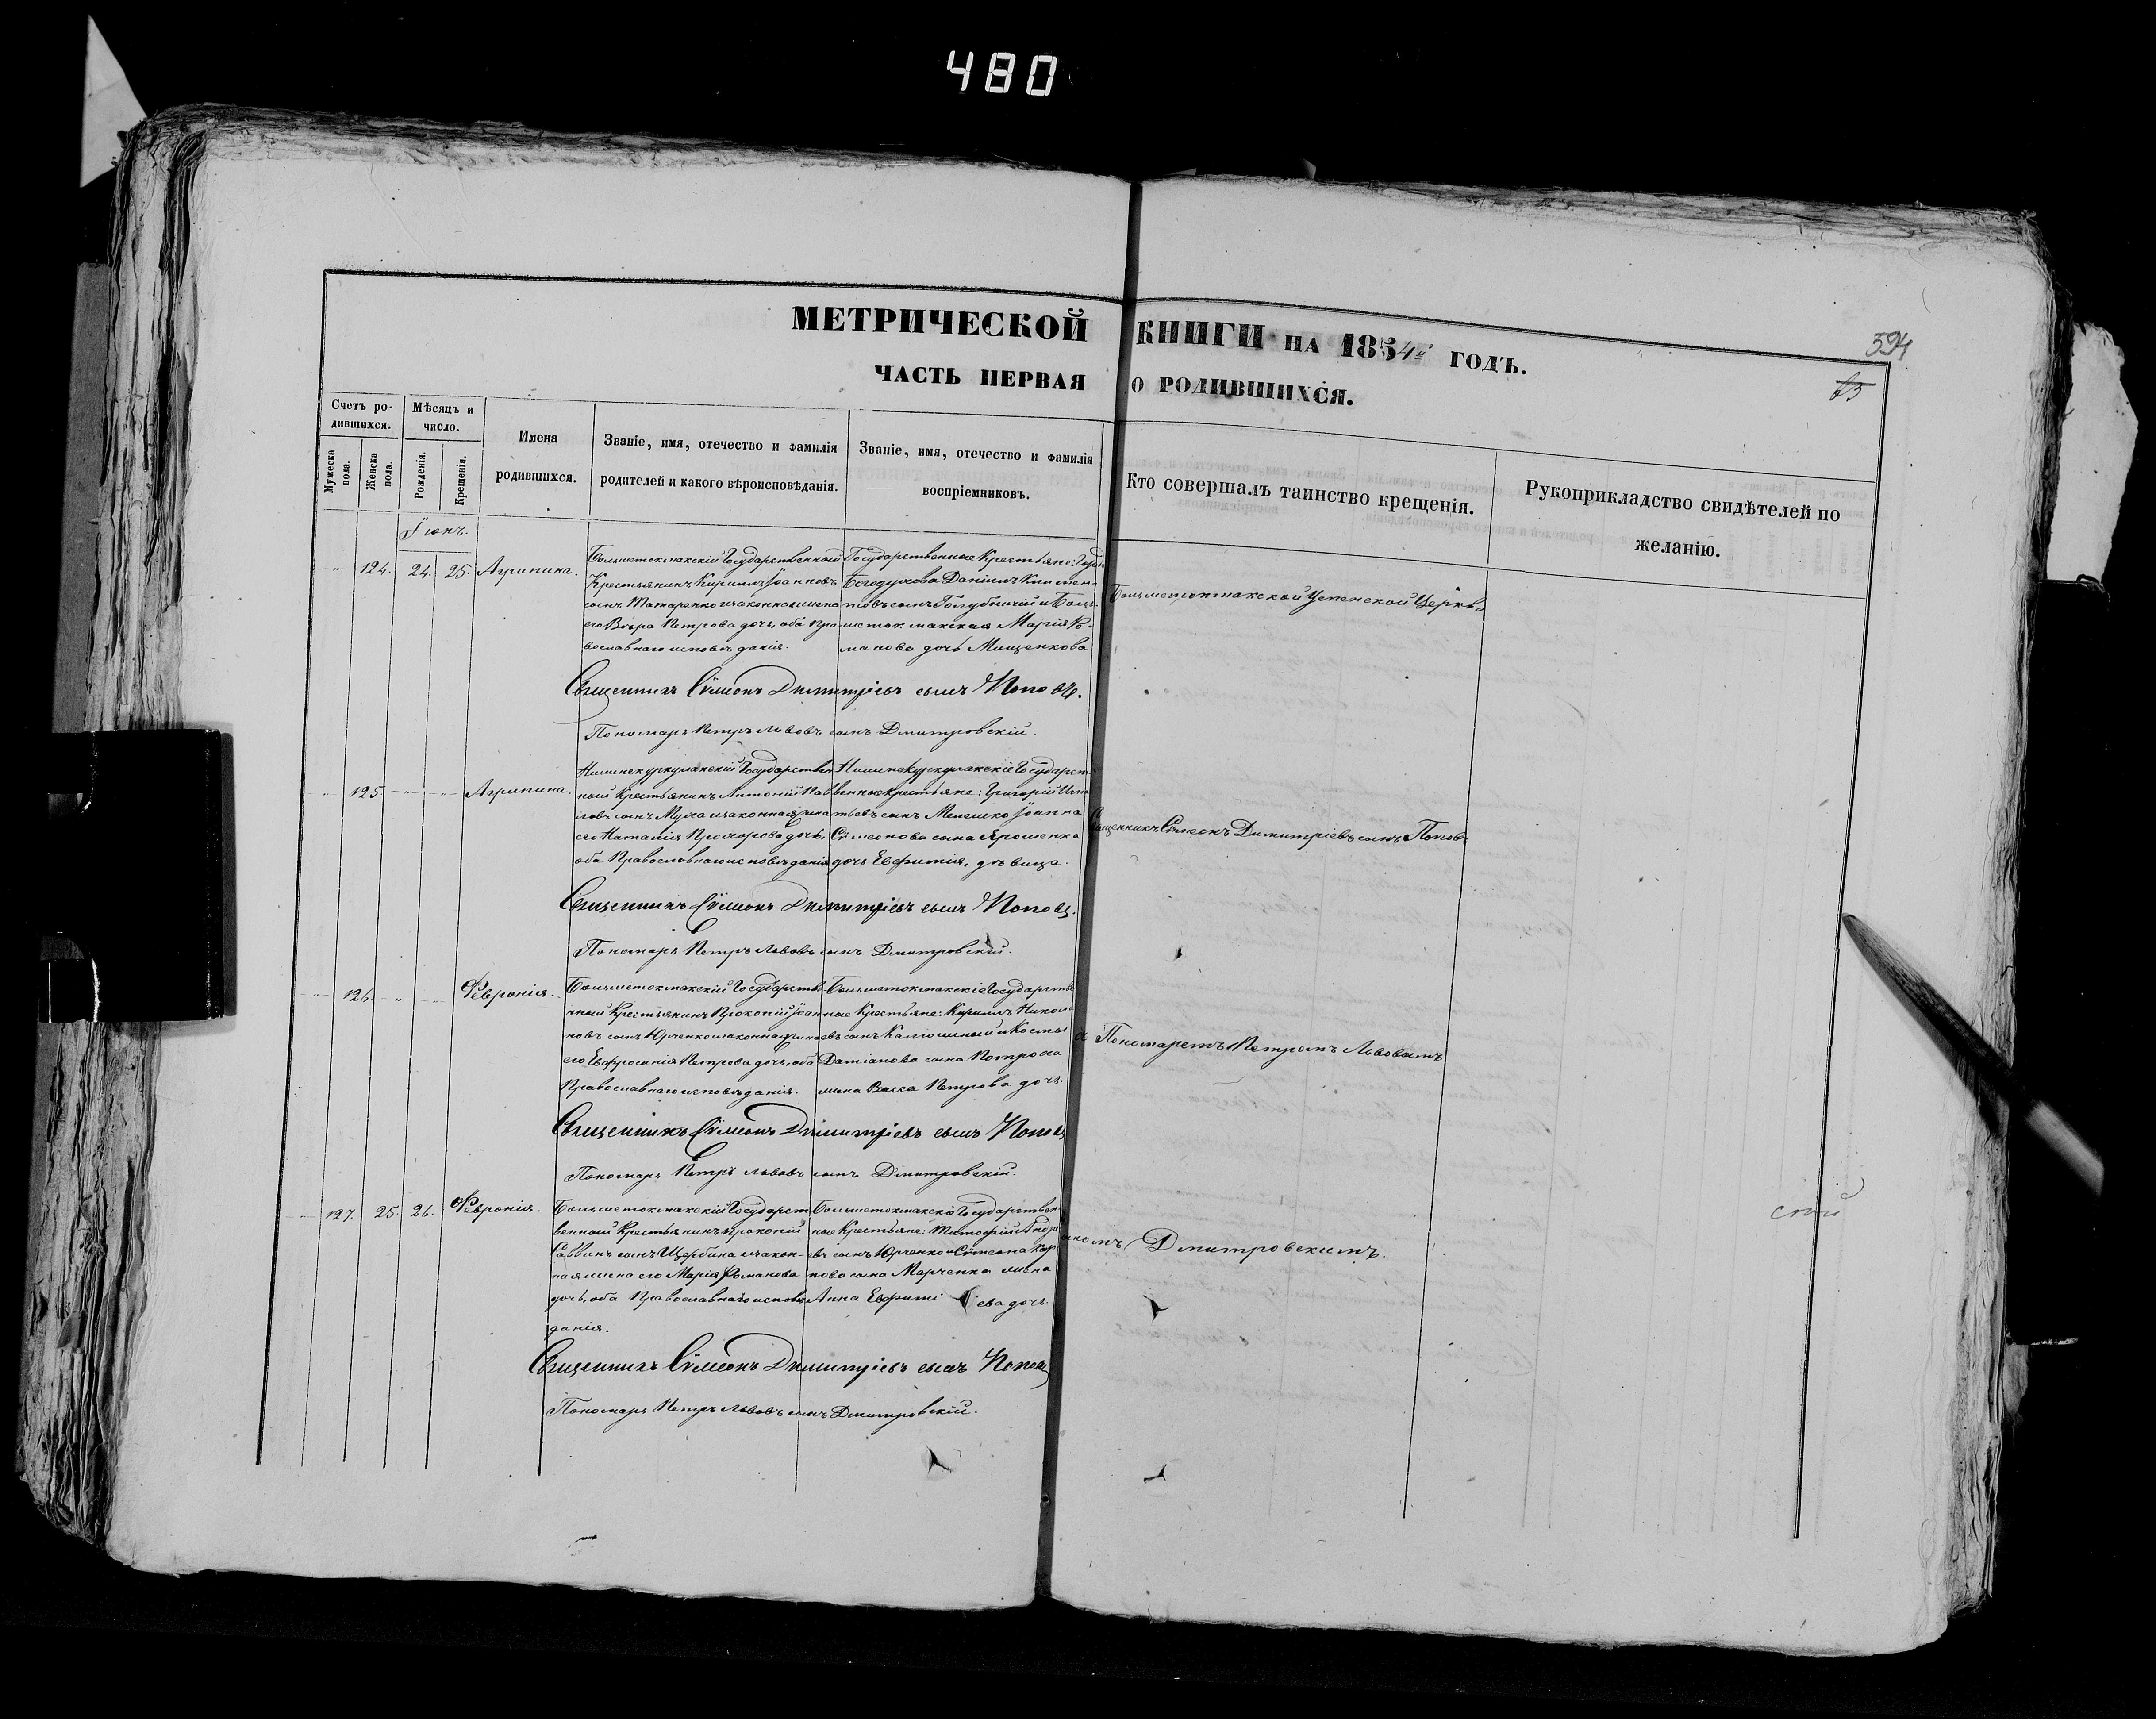 480
МЕТРИЧЕСКОЙ КНИГИ НА 1854й ГОДЪ.
594
ЧАСТЬ ПЕРВАЯ О РОДИВШИХСЯ.
63
Счетъ родившихся.
Мужеска пола.
Женска пола.
Мѣсяцъ и число.
Рожденія.
Крещенія.
Имена родившихся.
Званіе, имя, отечество и фамилія
родителей и какого вѣроисповѣданія.
Званіе, имя, отечество и фамилія
воспріемниковъ.
Кто совершалъ таинство крещенія.
Рукоприкладство свидѣтелей по
желанію.
Іюнь.
124. 24. 25. Агрипина.
Большетокмакскій Государственный
Крестьянинъ Кириллъ Іоанновъ
сынъ Татаренко и законная жена
его Вѣра Петрова дочь, оба Пра-
вославнаго исповѣданія.
Государственные Крестьяне:
Богодухова Даніилъ Климен-
товъ сынъ Голубничій и Боль-
шетокмакская Марія Ро-
манова дочь Мищенкова.
Священникъ Сумеонъ Димитріевъ сынъ Поповъ.
Пономарь Петръ Львовъ сынъ Дмитровскій.
125. Агрипина.
Нижнекуркулакскій Государствен-
ный Крестьянинъ Антоній Пав-
ловъ сынъ Муха и законная жена
его Наталія Прохорова дочь,
оба Православнаго исповѣданія
Нижнекуркулакскіе Государст-
венные Крестьяне: Григорій Игн
тьевъ сынъ Мелешко Іоанна
Сумеонова сына Ярошенка
дочь Евфимія, дѣвица.
Священникъ Сумеонъ Димитріевъ сынъ Поповъ.
Пономарь Петръ Львовъ сынъ Дмитровскій.
126. Февронія.
Большетокмакскій Государстве
нный Крестьянинъ Прокопій Іоан
новъ сынъ Юрченко и законная жена
его Евфросинія Петрова дочь, оба
Православнаго исповѣданія.
Большетокмакскіе Государстве
нные Крестьяне: Кириллъ Никола
евъ сынъ Калюжный и Космы
Даміанова сына
жена Васса Петрова дочь.
Священникъ Сумеонъ Димитріевъ сынъ Поповъ
Пономарь Петръ Львовъ сынъ Дмитровскій.
127. 25. 26. Февронія.
Большетокмакскій Государст
венный Крестьянинъ Прокопій
Саввинъ сынъ Щербина и закон-
ная жена его Марія Романова
дочь, оба Православнаго исповѣ
данія.
Большетокмакскіе Государствен
ные Крестьяне: Тимофѣй Андре
евъ сынъ Юрченко и Сумеона Кар
пова сына Марченка жена
Анна Евфиміева дочь.
Священникъ Сумеонъ Димитріевъ сынъ Поповъ
Пономарь Петръ Львовъ сынъ Дмитровскій.
Большетокмакской Успенской Церкви
Священникъ Сумеонъ Димитріевъ сынъ Поповъ
съ Пономаремъ Петромъ Львовымъ
сыномъ Дмитровскимъ.